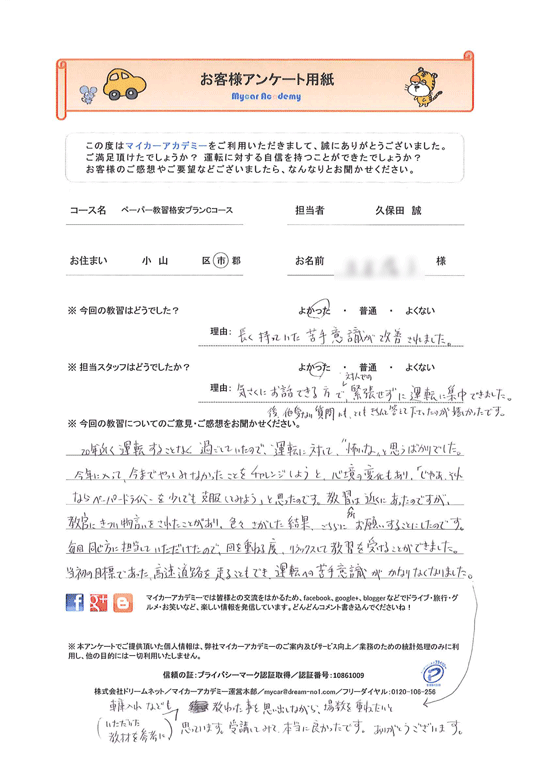 お客様アンケート用紙
Mycar Academy
この度はマイカーアカデミーをご利用いただきまして、誠にありがとうございました。
ご満足頂けたでしょうか？ 運転に対する自信を持つことができたでしょうか？
お客様のご感想やご要望などございましたら、なんなりとお聞かせください。
コース名 ペーパー教習格安プランCコース 担当者 久保田 誠
お住まい 小 山 区 市 郡 お名前 様
※ 今回の教習はどうでした？ よかった ・ 普通 ・ よくない
理由: 長く持っていた苦手意識が改善されました。
※ 担当スタッフはどうでしたか？ よかった ・ 普通 ・ よくない
理由: 気さくにお話できる方で、緊張せずに運転に集中できました。
※ 今回の教習についてのご意見・ご感想をお聞かせください。
20年近く運転することなく過ごしていたので、運転に対して、"怖いな"と思うばかりでした。
今年に入って、今までやってみなかったことをチャレンジしようと、心境の変化もあり、「じゃあ、
ならペーパードライバーを少しでも克服してみよう」と思ったのです。教習所は近くにあったのですが、
教官にきつい物言いをされたことがあり、色々さがした結果、こちらにお願いすることにしたのです。
毎回同じ方に担当していただけたので、回を重ねる度、リラックスして教習を受けることができました。
当初の目標であった、高速道路を走ることもでき、運転への苦手意識がかなりなくなりました。
マイカーアカデミーでは皆様との交流をはかるため、facebook、google+、bloggerなどでドライブ・旅行・グ
ルメ・お笑いなど、楽しい情報を発信しています。どんどんコメント書き込んでくださいね！
※ 本アンケートでご提供頂いた個人情報は、弊社マイカーアカデミーのご案内及びサービス向上／業務のための統計処理のみに利
用し、他の目的には一切利用いたしません。
信頼の証：プライバシーマーク認証取得／認証番号：10861009
株式会社ドリームネット／マイカーアカデミー運営本部／mycar@dream-no1.com／フリーダイヤル：0120-106-256
車庫入れなども 教わった事を思い出しながら、場数を重ねたいと
(いただいた教材を参考に) 思っています。受講してみて、本当に良かったです。ありがとうございます。